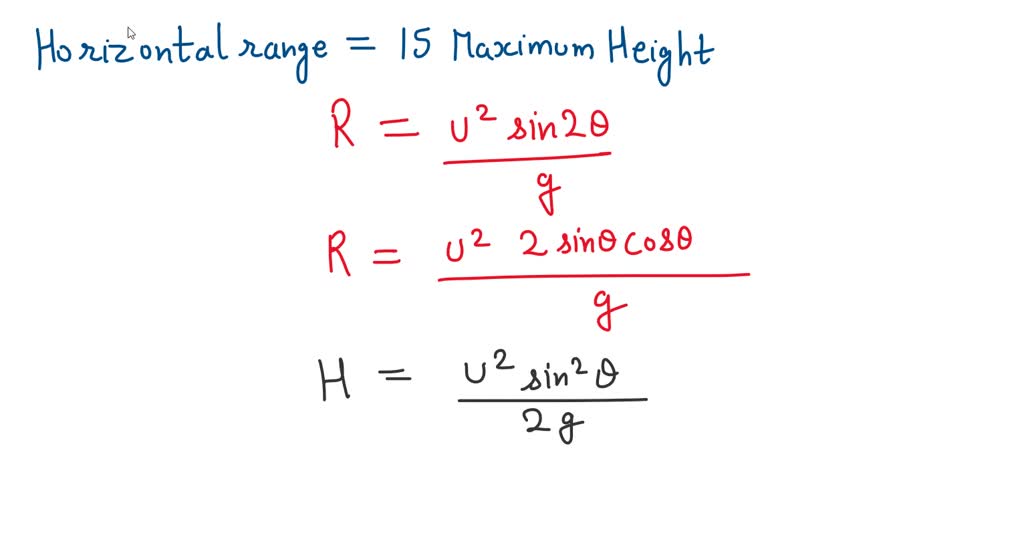 Horizontal range = 15 Maximum Height
R = u² sin2θ
g
R = u² 2 sinθ cosθ
g
H = u² sin²θ
2g